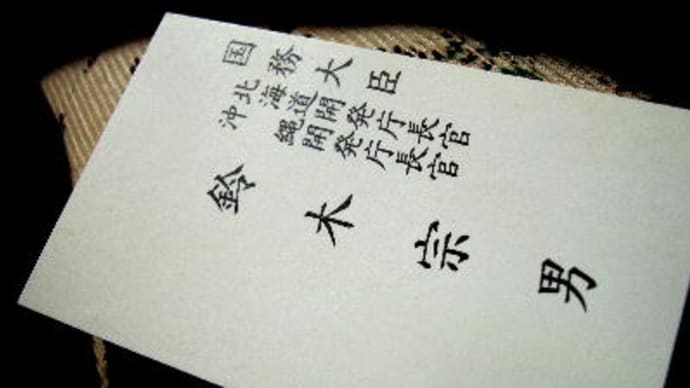 国務大臣
北海道開発庁長官
沖縄開発庁長官
鈴木宗男